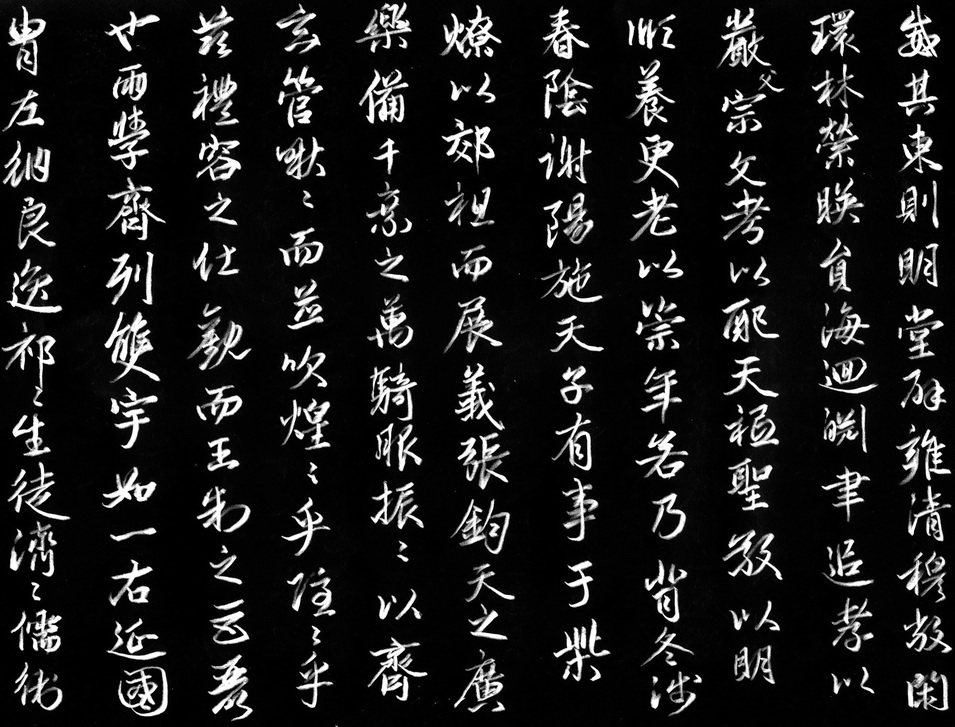 威其東則明堂辟雍清穆敞閑
環林縈暎員海迴淵聿追孝以
嚴父宗文考以配天祗聖敬以明
順養更老以崇年若乃背冬涉
春陰謝陽施天子有事于柴
燎以郊祖而展義張鈞天之廣
樂備千乘之萬騎服振〻以齊
玄管啾〻而並吹煌〻乎隱〻乎
茲禮容之壯觀而王制之巨麗
也兩學齊列雙宇如一右延國
胄左納良逸祁〻生徒濟〻儒術